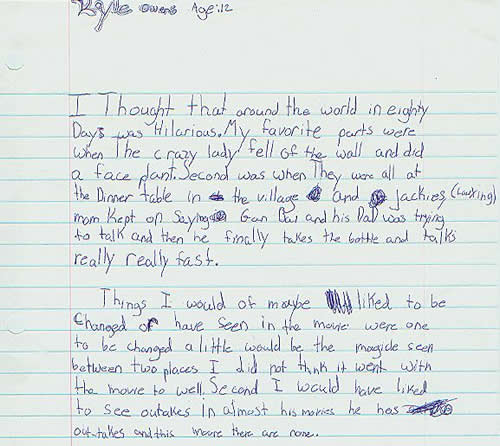 Kyle Owens Age:12
I Thought that around the world in eighty
Days was Hilarious. My favorite parts were
when The crazy lady fell of the wall and did
a face plant. Second was when They were all at
the Dinner table in the village and jackies (Lauxing)
mom kept on Saying Gan Bai and his Dad was trying
to talk and then he finally takes the bottle and talks
really really fast.
Things I would of maybe liked to be
Changed or have seen in the movie were one
to be changed a little would be the magide seen
between two places I did not think it went with
the movie to well. Second I would have liked
to see outakes in almost his movies he has
outtakes and this movie there are none.